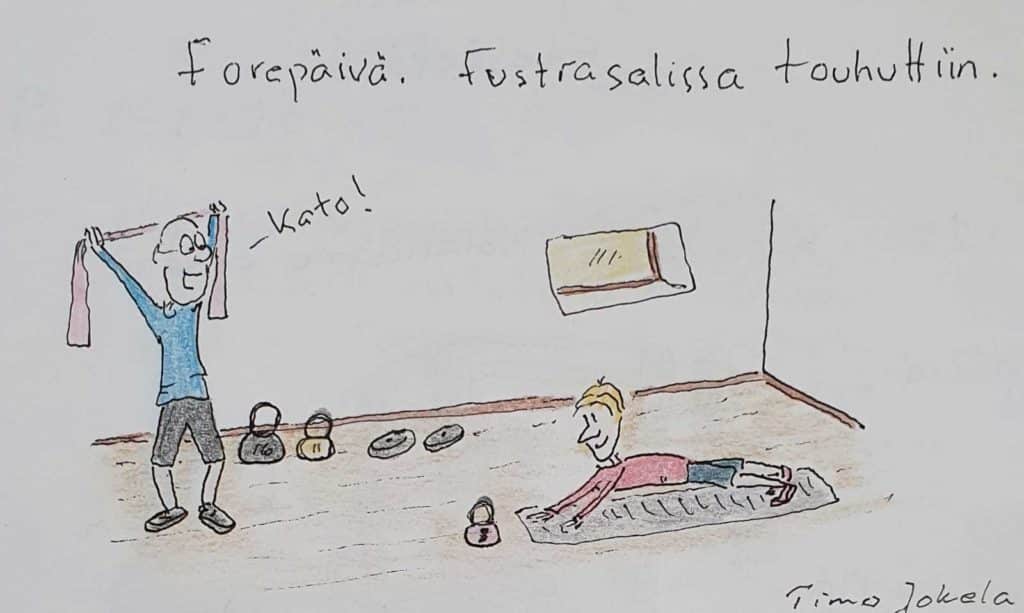 Forepäivä. Fustrasalissa touhuttiin.
- Kato!
16
11
8
Timo Jokela